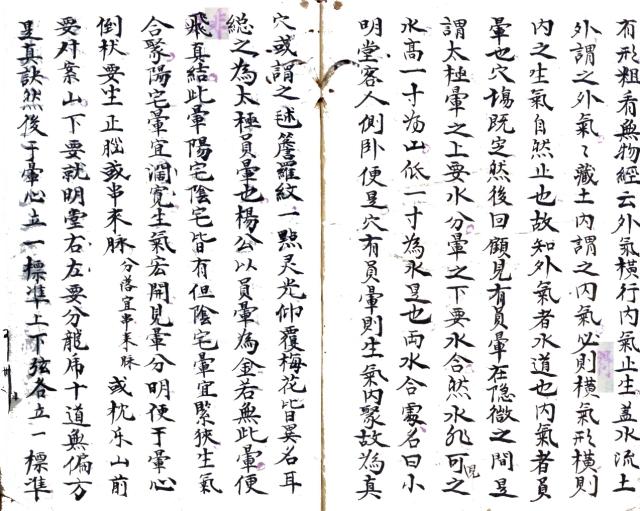 有形粗看無物經云外氣橫行內氣止生蓋水流土
外謂之外氣〻藏土內謂之內氣必則橫氣形橫則
內之生氣自然止也故知外氣者水道也內氣者員
暈也穴塲既定然後回顧見有員暈在隐微之間是
謂太極暈之上要水分暈之下要水合然水非可見之
水高一寸為山低一寸為水是也両水合處名曰小
明堂客人側卧便是穴有員暈則生氣內聚故為真
穴或謂之毬簷羅紋一㸃灵光仰覆梅花皆異名耳
縂之為太極員暈也楊公以員暈為金若無此暈便
非真結此暈陽宅陰宅皆有但陰宅暈宜緊狹生氣
合聚陽宅暈宜濶寛生氣宏開見暈分明便于暈心
倒杖要坐正腦或串來脉分落宜串来脉或枕乐山前
要对案山下要就明堂右左要分龍虎十道無偏方
是真訣然後于暈心立一標準上下弦各立一標準